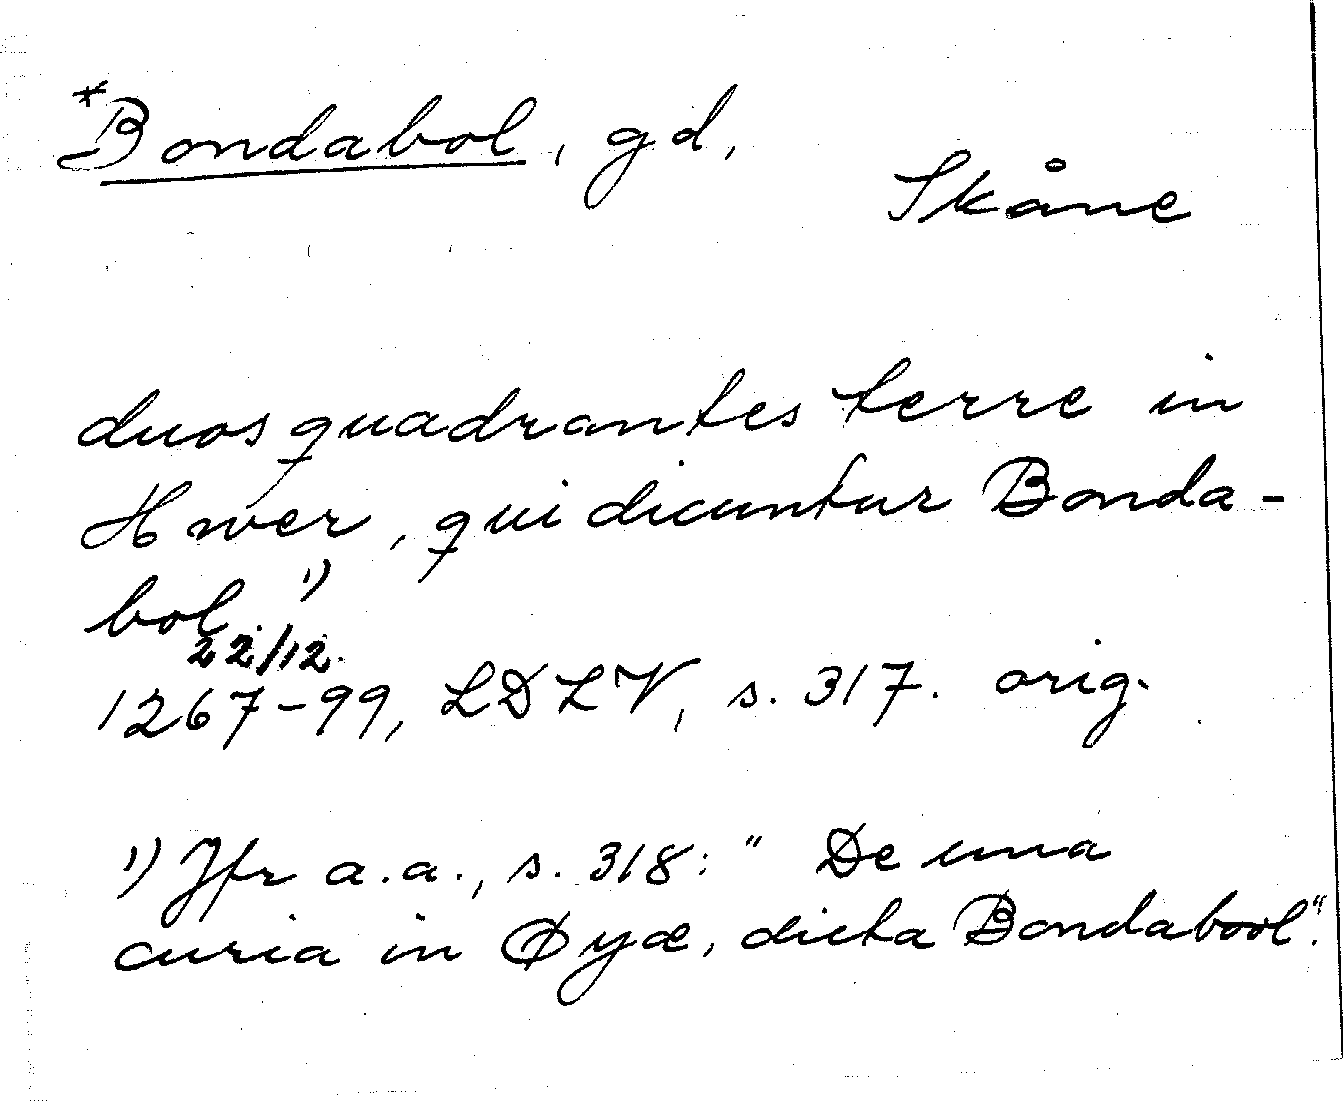 *Bondabol, gd,
Skåne
duos quadrantes terre in
Hwer, qui dicuntur Bonda-
bol 1)
22/12.
1267-99, LDLV, s. 317. orig.
1) Jfr a.a., s. 318: " De una
curia in Øyæ, dicta Bondabool".